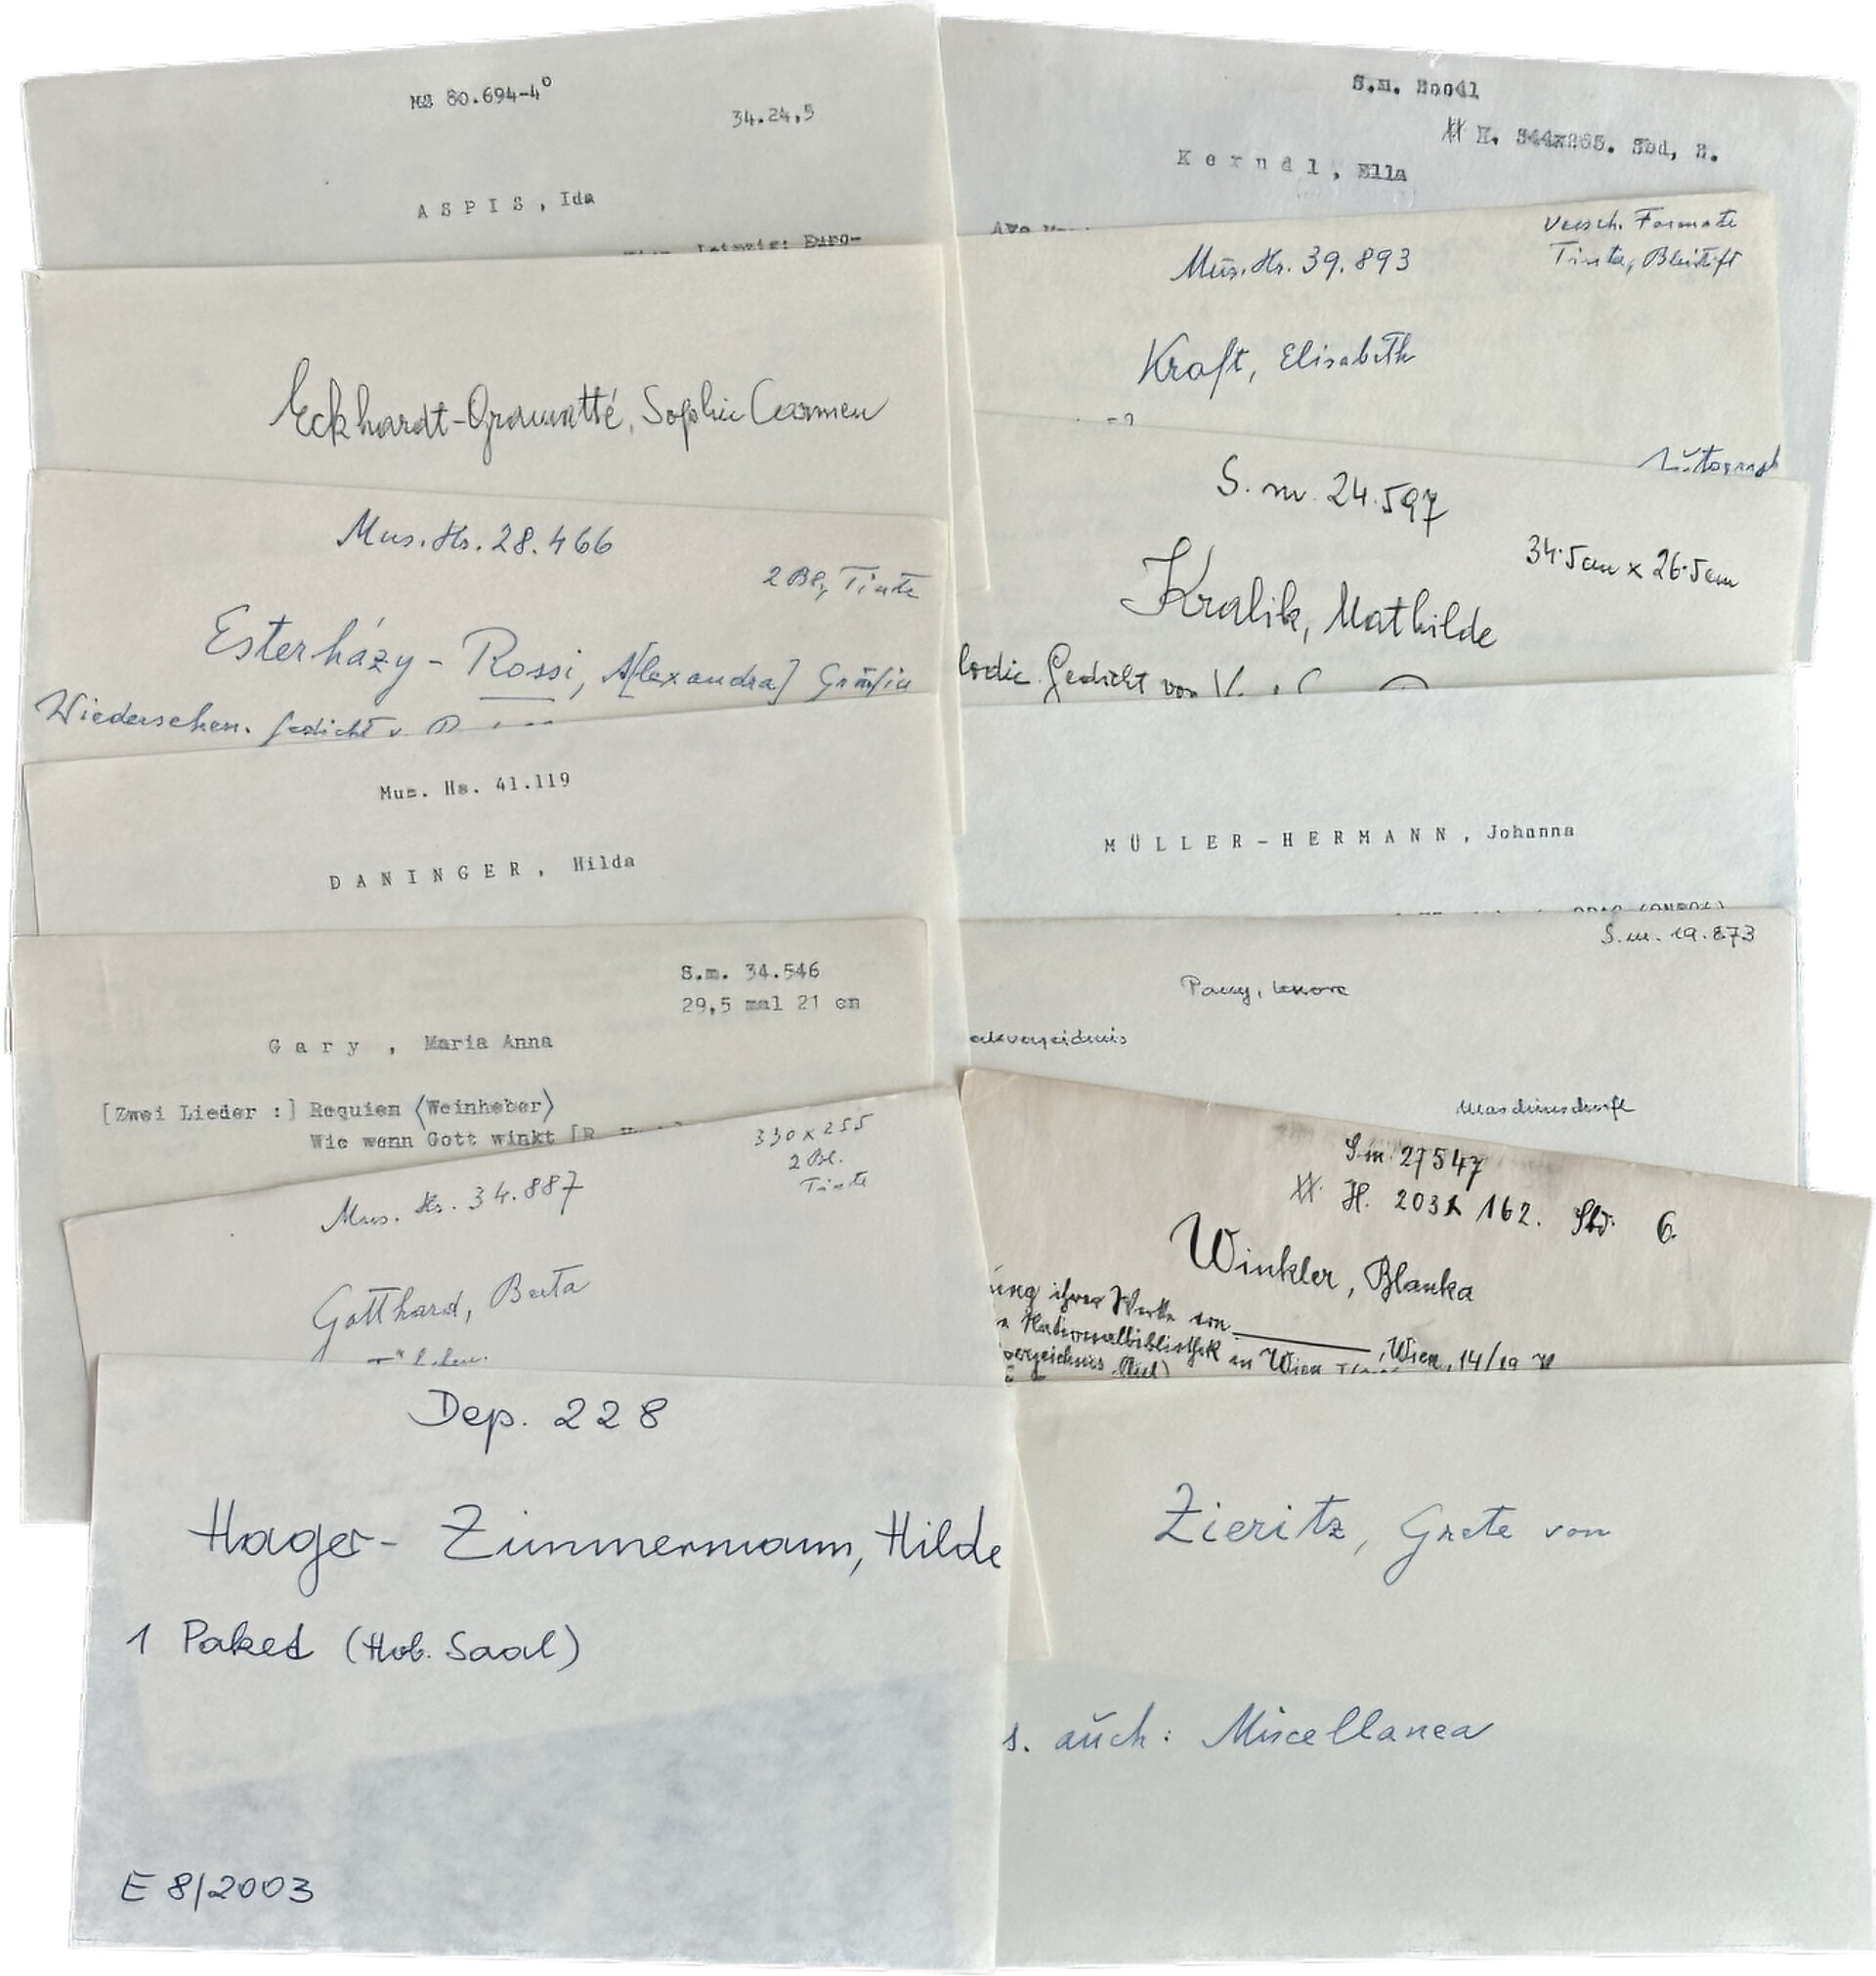 MS 80.694-4°
34.24,5
ASPIS, Ida
Eckhardt-Gramatté, Sophie Carmen
Mus. Hs. 28.466
2 Bl, Tinte
Esterházy-Rossi, A[lexandra] Gräfin
Wiedersehen. Gedicht v.
Mus. Hs. 41.119
DANINGER, Hilda
S.m. 34.546
29,5 mal 21 cm
Gary, Maria Anna
[Zwei Lieder :] Requiem ⟨Weinheber⟩
Wie wenn Gott winkt
Mus. Hs. 34.887
330 x 255
2 Bl.
Tinte
Gotthard, Berta
Dep. 228
Hager-Zimmermann, Hilde
1 Paket (Hob. Saal)
E 8/2003
S.m.
Kerndl, Ella
Mus. Hs. 39.893
Versch. Formate
Tinte, Bleistift
Kraft, Elisabeth
Autograph
S. m. 24.597
34·5cm x 26·5cm
Kralik, Mathilde
Gedicht von
MÜLLER-HERMANN, Johanna
S.m. 19.873
Pany, Leonore
Maschinschrift
S.m. 27547
H. 203 x 162. Sbd. 6.
Winkler, Blanka
ihrer Werke von , Wien, 14/19
Nationalbibliothek in Wien
Zieritz, Grete von
s. auch: Miscellanea